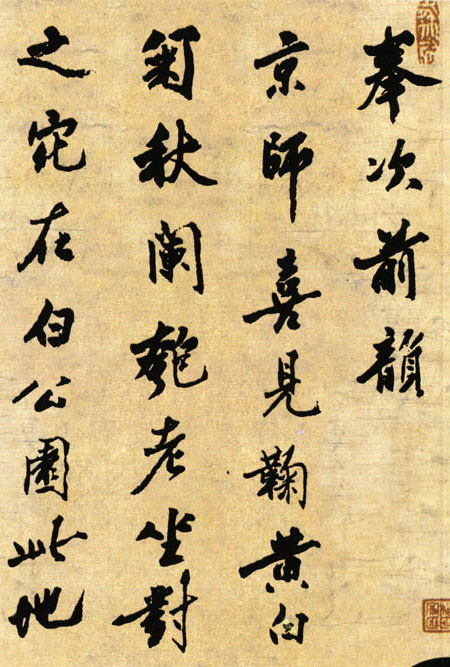 奉次前韻
京師喜見鞠黄白
菊秋闌匏老坐對
之宛在白公園此地